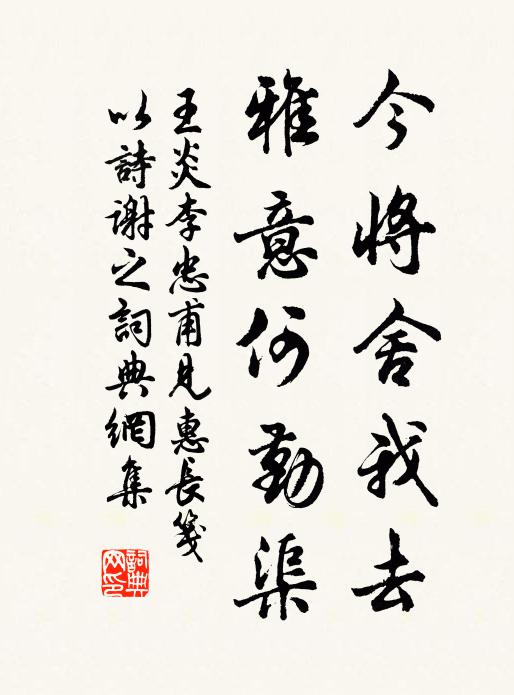 今將舍我去
雅意何勤渠
王炎李忠甫見惠長箋
以詩謝之詞典網集
詞典
网印